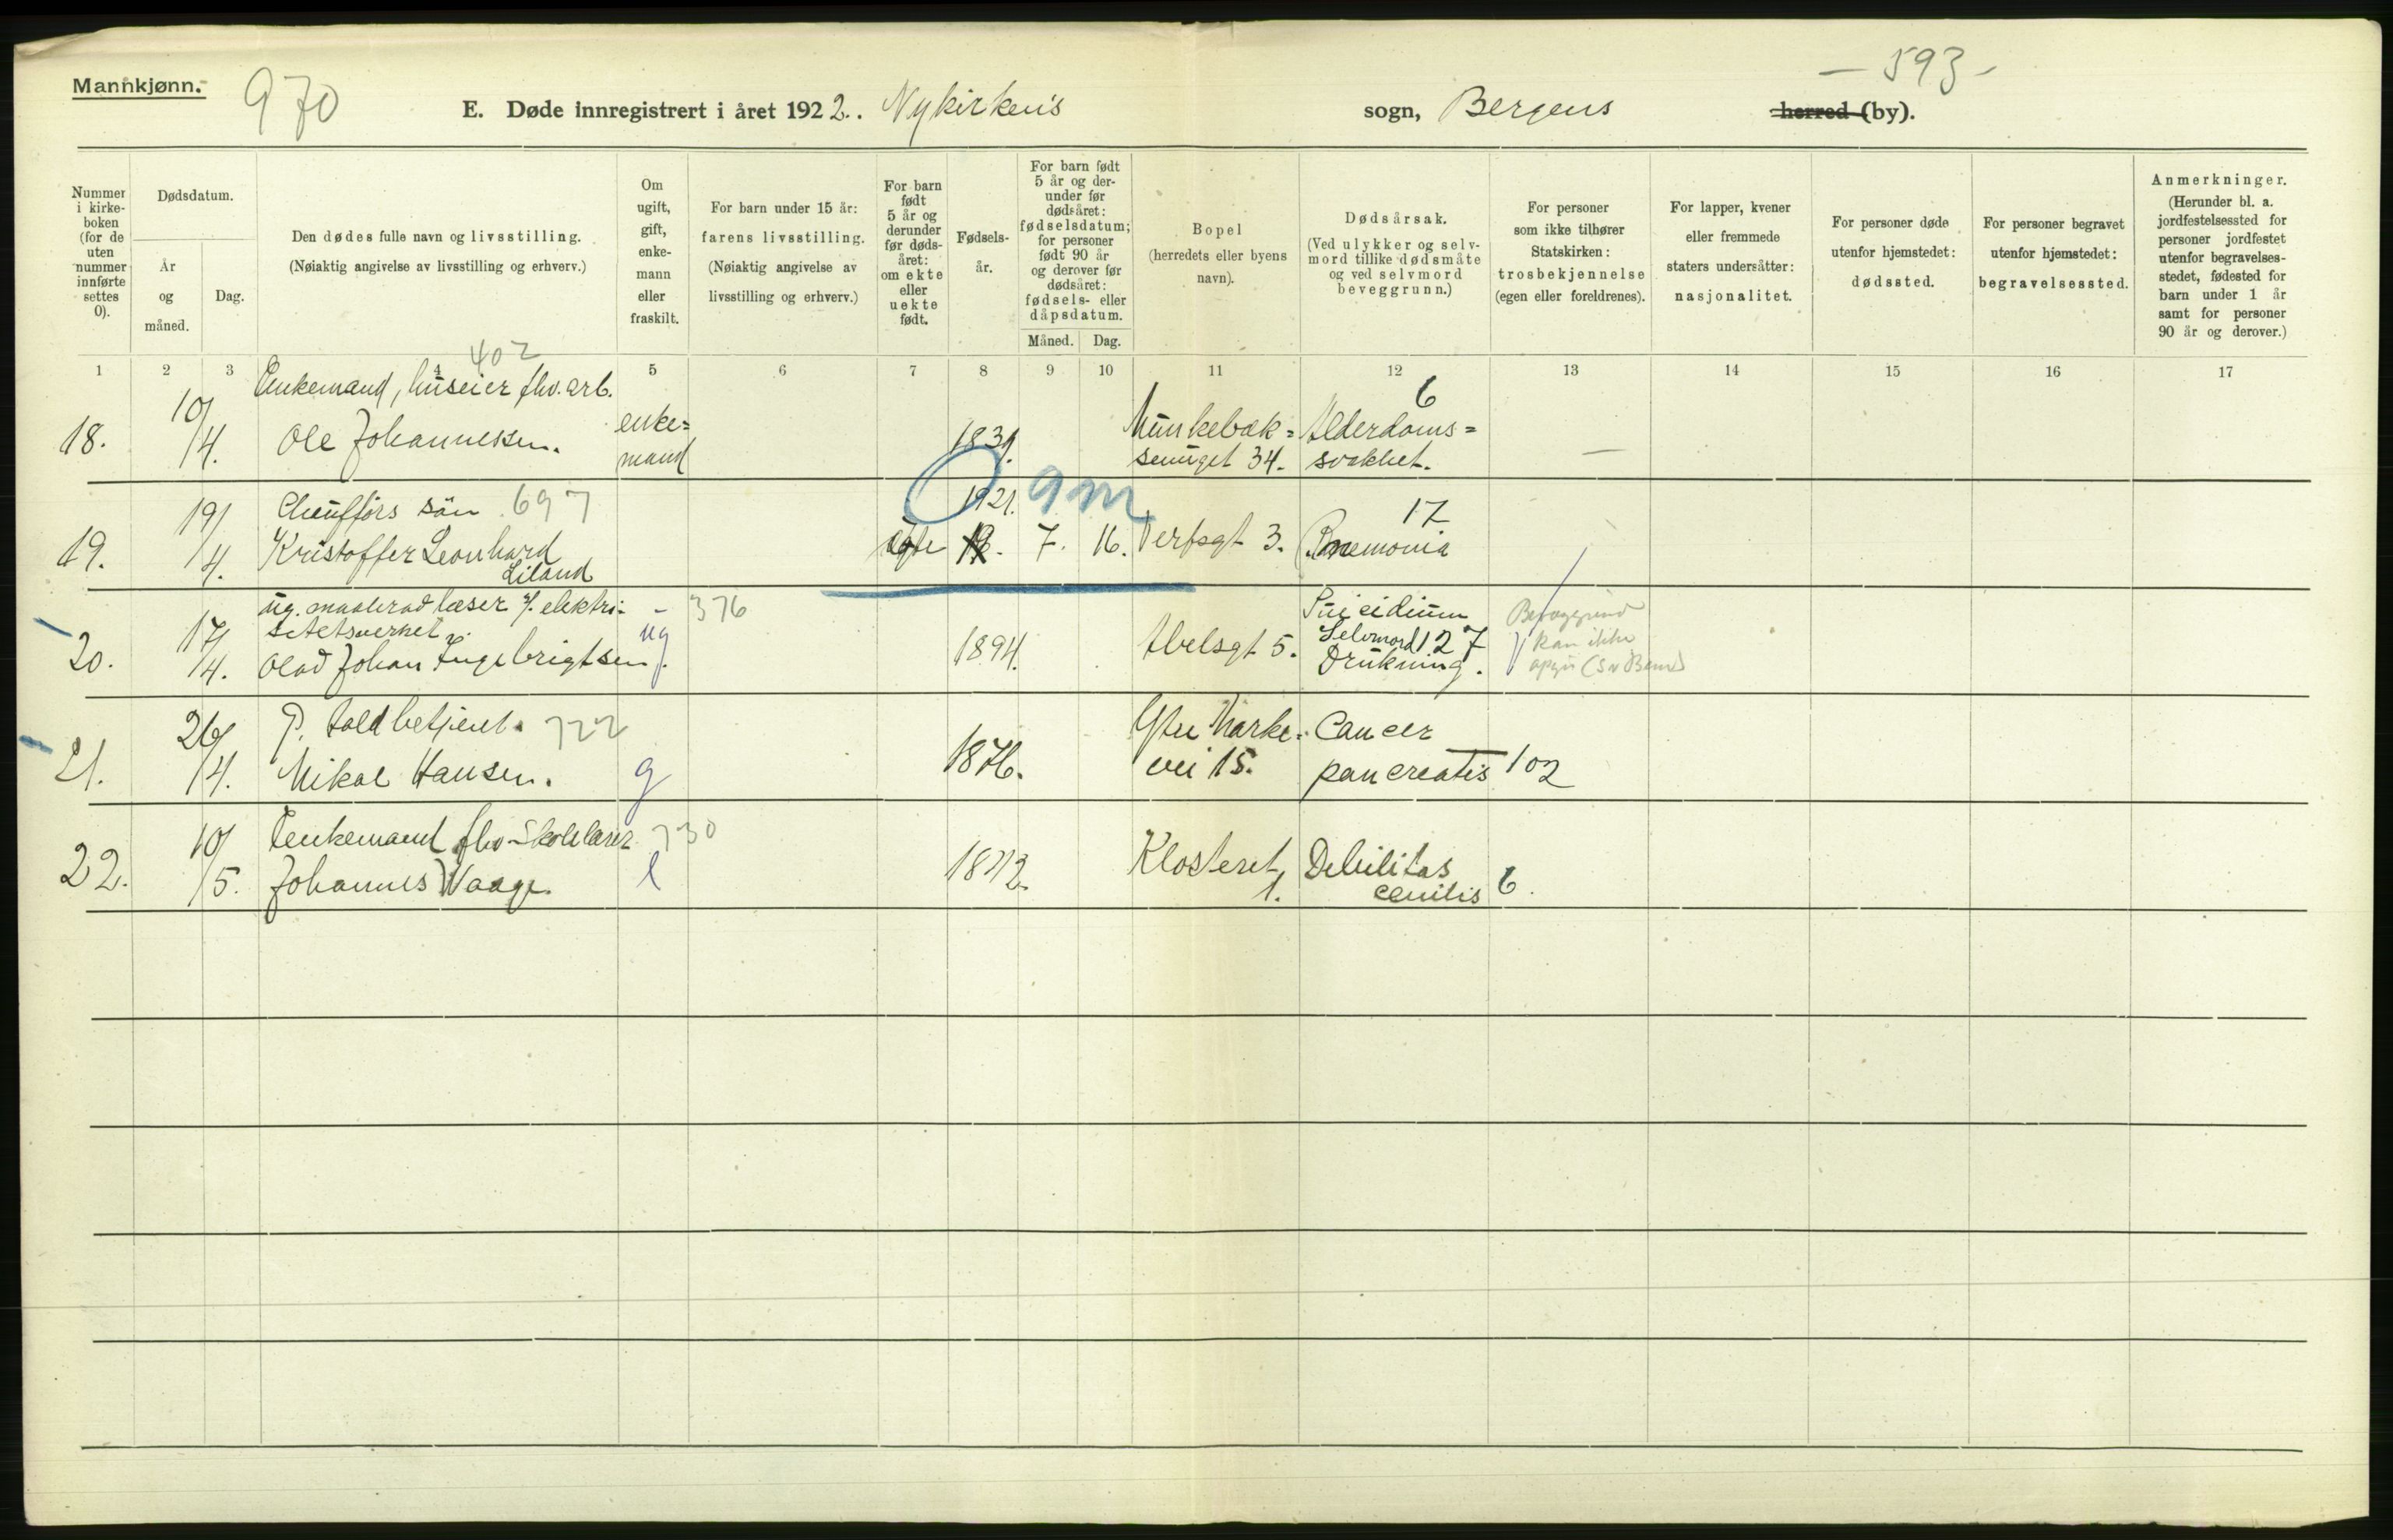 Mannkjønn.
970
- 593 -
E. Døde innregistrert i året 1922. Nykirkens sogn, Bergens herred (by).
Nummer i kirke-boken (for de uten nummer innførte settes 0).
Dødsdatum.
År og måned.
Dag.
Den dødes fulle navn og livsstilling.
(Nøiaktig angivelse av livsstilling og erhverv.)
Om ugift, gift, enke-mann eller fraskilt.
For barn under 15 år:
farens livsstilling.
(Nøiaktig angivelse av livsstilling og erhverv.)
For barn født 5 år og derunder før døds-året: om ekte eller uekte født.
Fødsels-år.
For barn født 5 år og der-under før dødsåret: fødselsdatum; for personer født 90 år og derover før dødsåret: fødsels- eller dåpsdatum.
Måned. Dag.
Bopel
(herredets eller byens navn).
Dødsårsak.
(Ved ulykker og selv-mord tillike dødsmåte og ved selvmord beveggrunn.)
For personer som ikke tilhører Statskirken: trosbekjennelse (egen eller foreldrenes).
For lapper, kvener eller fremmede staters undersåtter: nasjonalitet.
For personer døde utenfor hjemstedet: dødssted.
For personer begravet utenfor hjemstedet: begravelsessted.
Anmerkninger.
(Herunder bl. a. jordfestelsessted for personer jordfestet utenfor begravelses-stedet, fødested for barn under 1 år samt for personer 90 år og derover.)
1 2 3 4 5 6 7 8 9 10 11 12 13 14 15 16 17
402
Enkemand, huseier fhv. arb. 6
18. 10/4. Ole Johannessen. enke=mand 1839. Munkebæk=smuget 34. Alderdoms=svakhet. —
Chaufförs sön 697 1921. 9 m 17
19. 19/4. Kristoffer Leonhard Liland ekte 7. 16. Verftsgt 3. Pnemonia
ug. maaleravlæser v/. elektri- - 376 Suicidium
20. 17/4. sitetsverket Olav Johan Ingebrigtsen. ug 1894. Abelsgt 5. Selvmord 127 Drukning.
Bevæggrund kan ikke opgis
P. toldbetjent. 722
21. 26/4. Mikal Hansen. g 1876. Øvre Marke=vei 15. Cancer pancreatis 102
Enkemand fhv skolelærer 730
22. 10/5. Johannes Waage. e 1842. Klosteret 1. Debilitas cenilis 6.